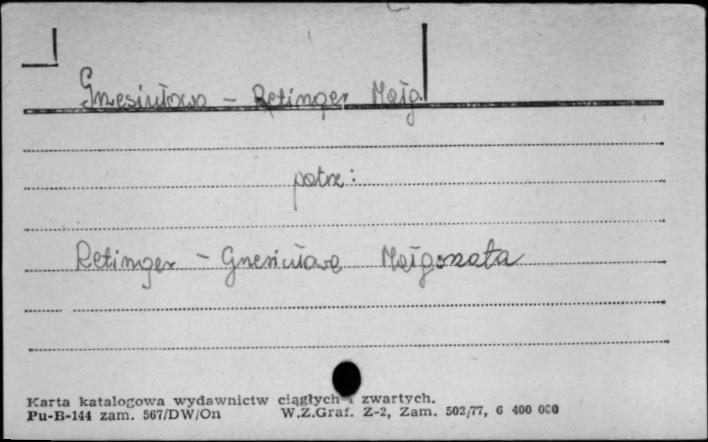 Grzesiułowa - Retinger Małg.
patrz:
Retinger - Grzesiułowa Małgorzata
Karta katalogowa wydawnictw ciągłych i zwartych.
Pu-B-144 zam. 567/DW/On W.Z.Graf. Z-2, Zam. 502/77, 6 400 000